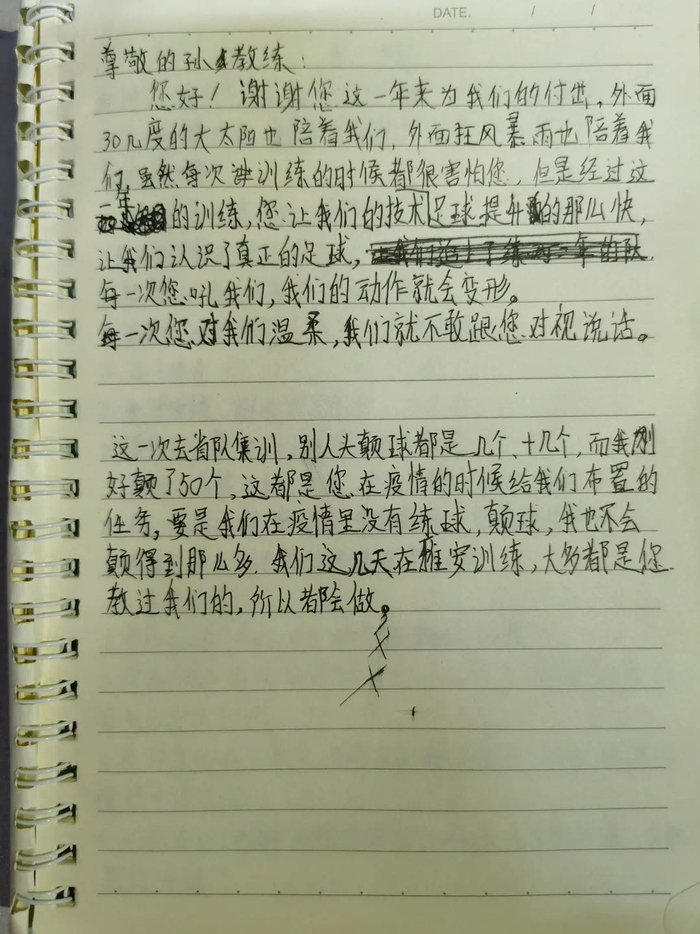 DATE. / /
尊敬的孙教练：
您好！谢谢您这一年来为我们的付出，外面
30几度的大太阳也陪着我们，外面狂风暴雨也陪着我
们，虽然每次训练的时候都很害怕您，但是经过这
一年的训练，您让我们的技术足球提升的那么快，
让我们认识了真正的足球，
每一次您吼我们，我们的动作就会变形。
每一次您对我们温柔，我们就不敢跟您对视说话。
这一次去省队集训，别人头颠球都是几个、十几个，而我刚
好颠了50个，这都是您在疫情的时候给我们布置的
任务，要是我们在疫情里没有练球，颠球，我也不会
颠得到那么多.我们这几天在雅安训练，大多都是您
教过我们的，所以都会做。